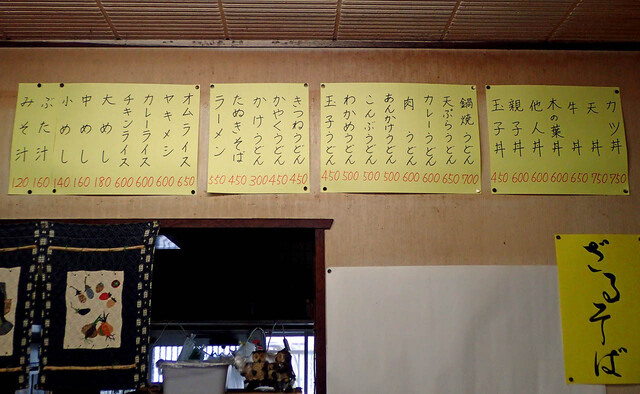 カツ丼 750
天丼 750
牛丼 650
木の葉丼 600
他人丼 600
親子丼 600
玉子丼 450
鍋焼うどん 700
天ぷらうどん 650
カレーうどん 600
肉うどん 600
あんかけうどん 500
こんぶうどん 500
わかめうどん 500
玉子うどん 450
きつねうどん 450
かやくうどん 450
かけうどん 300
たぬきそば 450
ラーメン 550
オムライス 650
ヤキメシ 600
カレーライス 600
チキンライス 600
大めし 180
中めし 160
小めし 140
ぶた汁 160
みそ汁 120
ざるそば